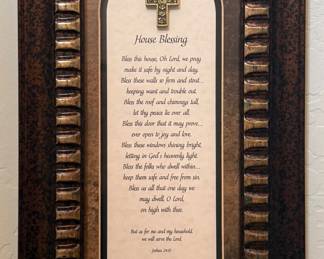 House Blessing
Bless this house, Oh Lord, we pray
make it safe by night and day.
Bless these walls so firm and stout...
keeping want and trouble out.
Bless the roof and chimneys tall,
let thy peace lie over all.
Bless this door that it may prove...
ever open to joy and love.
Bless these windows shining bright,
letting in God's heavenly light.
Bless the folks who dwell within...
keep them safe and free from sin.
Bless us all that one day we
may dwell, O Lord,
on high with thee.
But as for me and my household,
we will serve the Lord.
Joshua 24:15